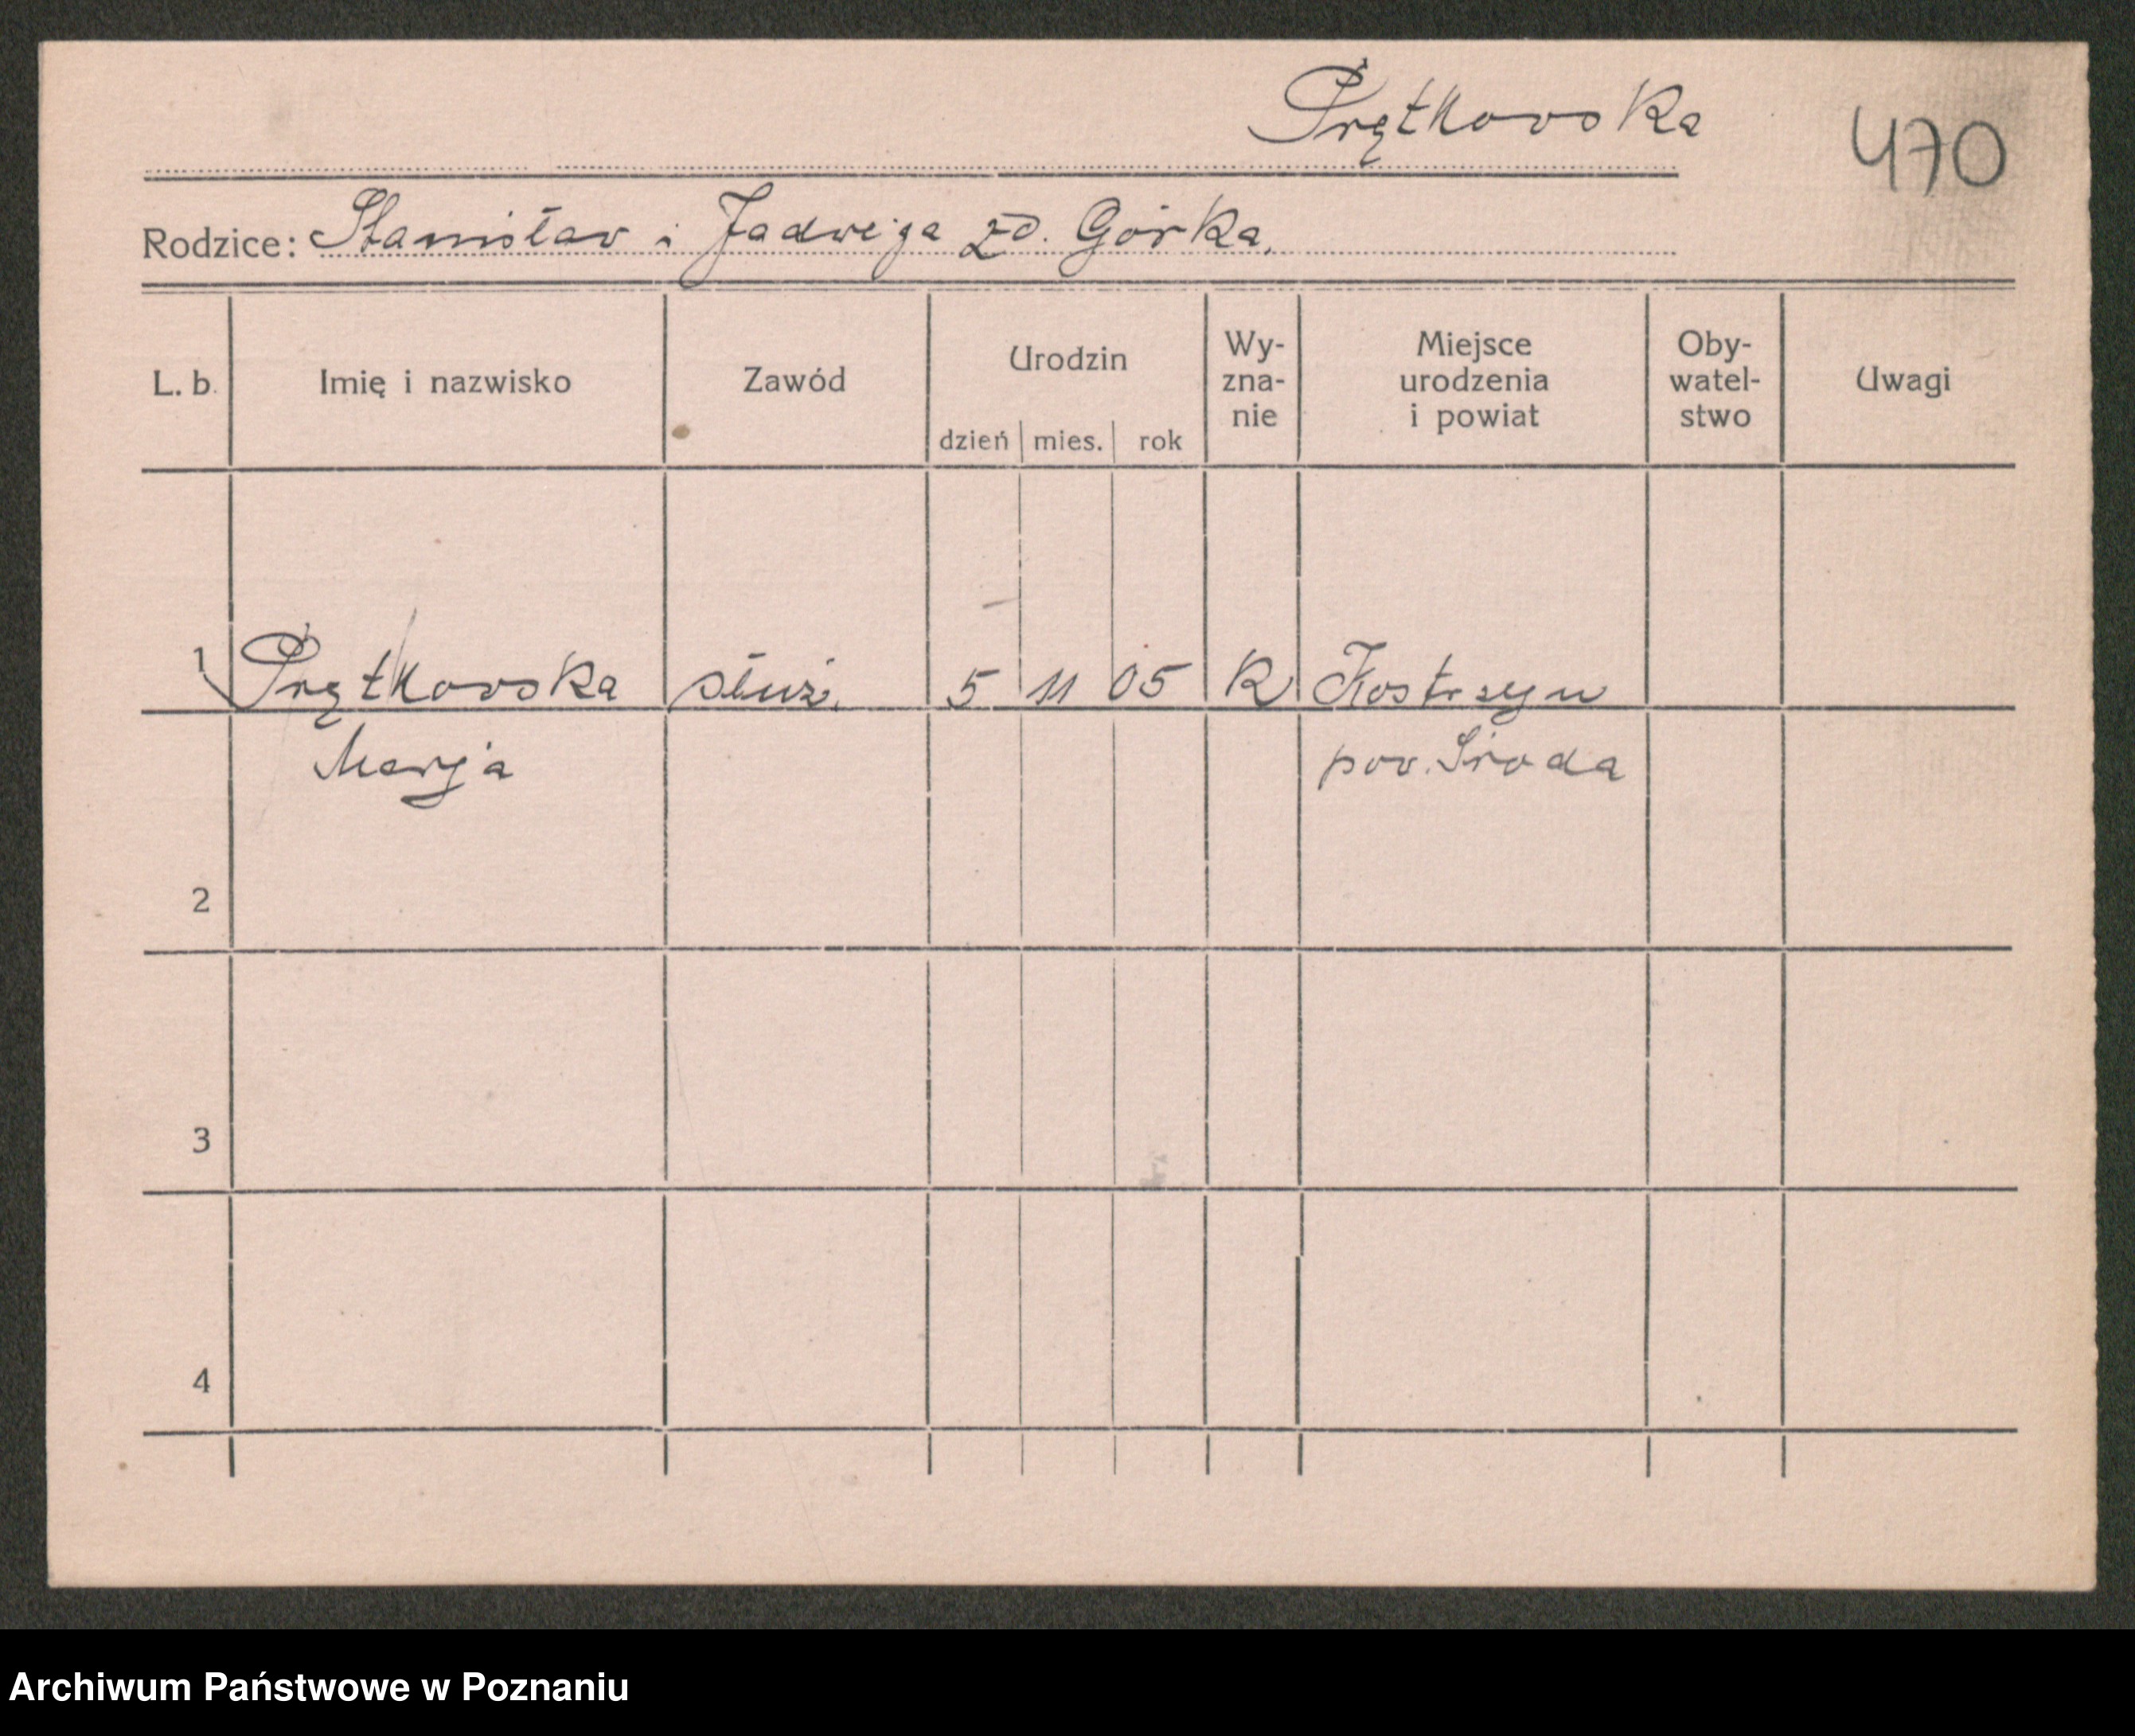 Prętkowska
470
Rodzice: Stanisław i Jadwiga zd. Górka.
L. b. Imię i nazwisko Zawód Urodzin dzień mies. rok Wy-zna-nie Miejsce urodzenia i powiat Oby-watel-stwo Uwagi
1 Prętkowska służ. 5 11 05 R Kostrzyn
Marja pow. Środa
2
3
4
Archiwum Państwowe w Poznaniu